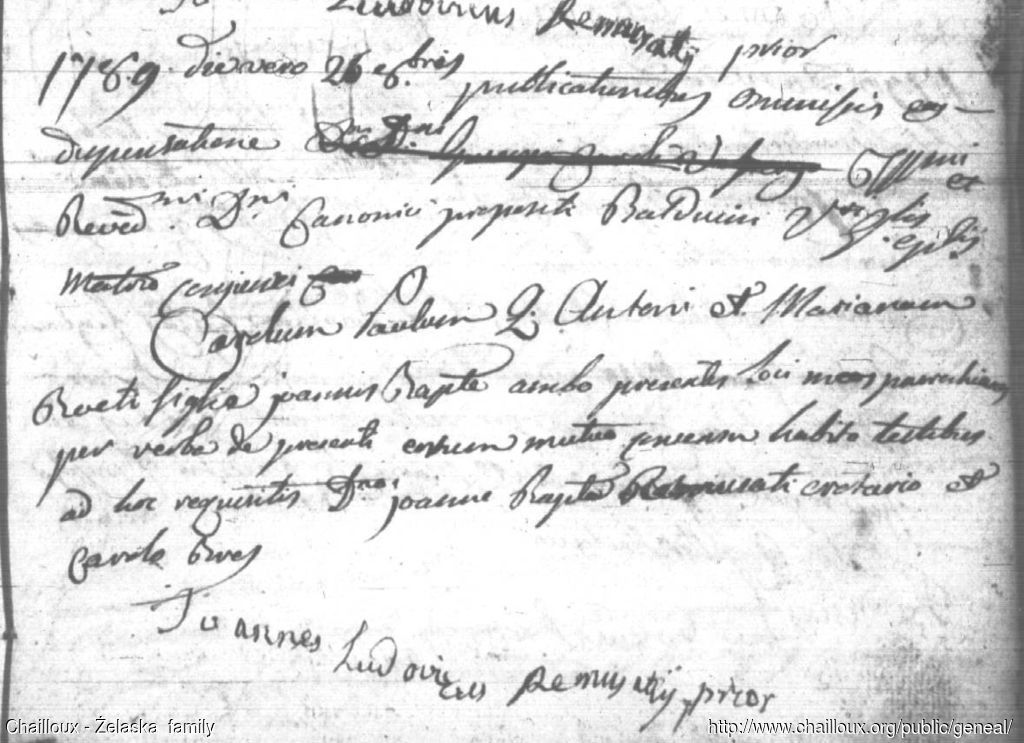 Ludovicus Remusatij prior
1789 die vero 26 8bris publicationibus omissis ex
dispensatione Illmi et
Revedmi Dni Canonici prepositi Balduini
Matrio conjunxi
Carolum Paulum Q. Antoni et Marianam
Roeti figlia joannis Bapte ambo presentis loci meos parrochianos
per verba de presenti eorum mutuo consensu habito testibus
ad hoc requisitis Dno joanne Bapta Remusati cretario et
Carolo Bres
Joannes Ludovicus Remusatij prior
Chailloux - Żelaska family
http://www.chailloux.org/public/geneal/